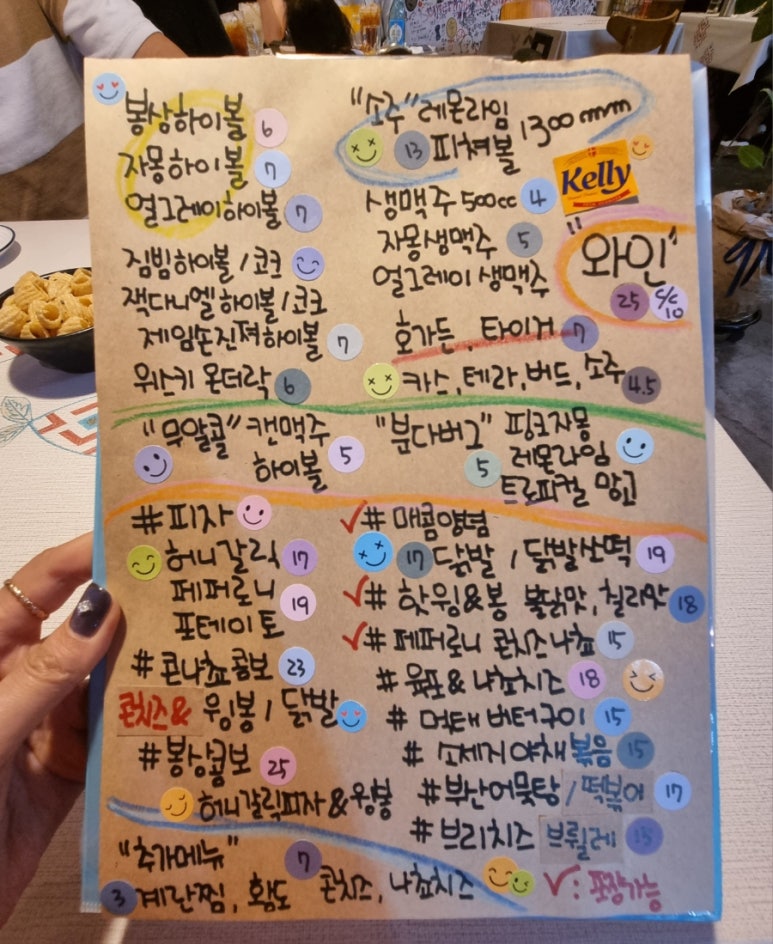 봉상하이볼 6
자몽하이볼 7
얼그레이하이볼 7
짐빔하이볼 / 코크
잭다니엘 하이볼 / 코크
제임슨진져하이볼 7
위스키 온더락 6
"소주" 레몬라임
13 피쳐볼 1300mm
생맥주 500cc 4
Kelly
자몽생맥주 5
얼그레이 생맥주
"와인"
25 C/C 10
호가든, 타이거 7
카스, 테라, 버드, 소주 4.5
"무알콜" 캔맥주
하이볼 5
"분다버그" 핑크자몽
5 레몬라임
트로피컬 망고
#피자
허니갈릭 17
페퍼로니 19
포테이토
#콘나쵸콤보 23
콘치즈& 윙봉 / 닭발
#봉상콤보 25
허니갈릭피자 & 윙봉
✓# 매콤양념
17 닭발 / 닭발쏘떡 19
✓# 핫윙&봉 불닭맛, 칠리맛 18
✓# 페퍼로니 콘치즈나쵸 15
# 육포 & 나쵸치즈 18
# 먹태 버터구이 15
# 소세지야채볶음 15
#부산어묵탕 / 떡볶이 17
#브리치즈 브륄레 15
"추가메뉴"
3 계란찜, 황도 7 콘치즈, 나쵸치즈
✓: 포장가능